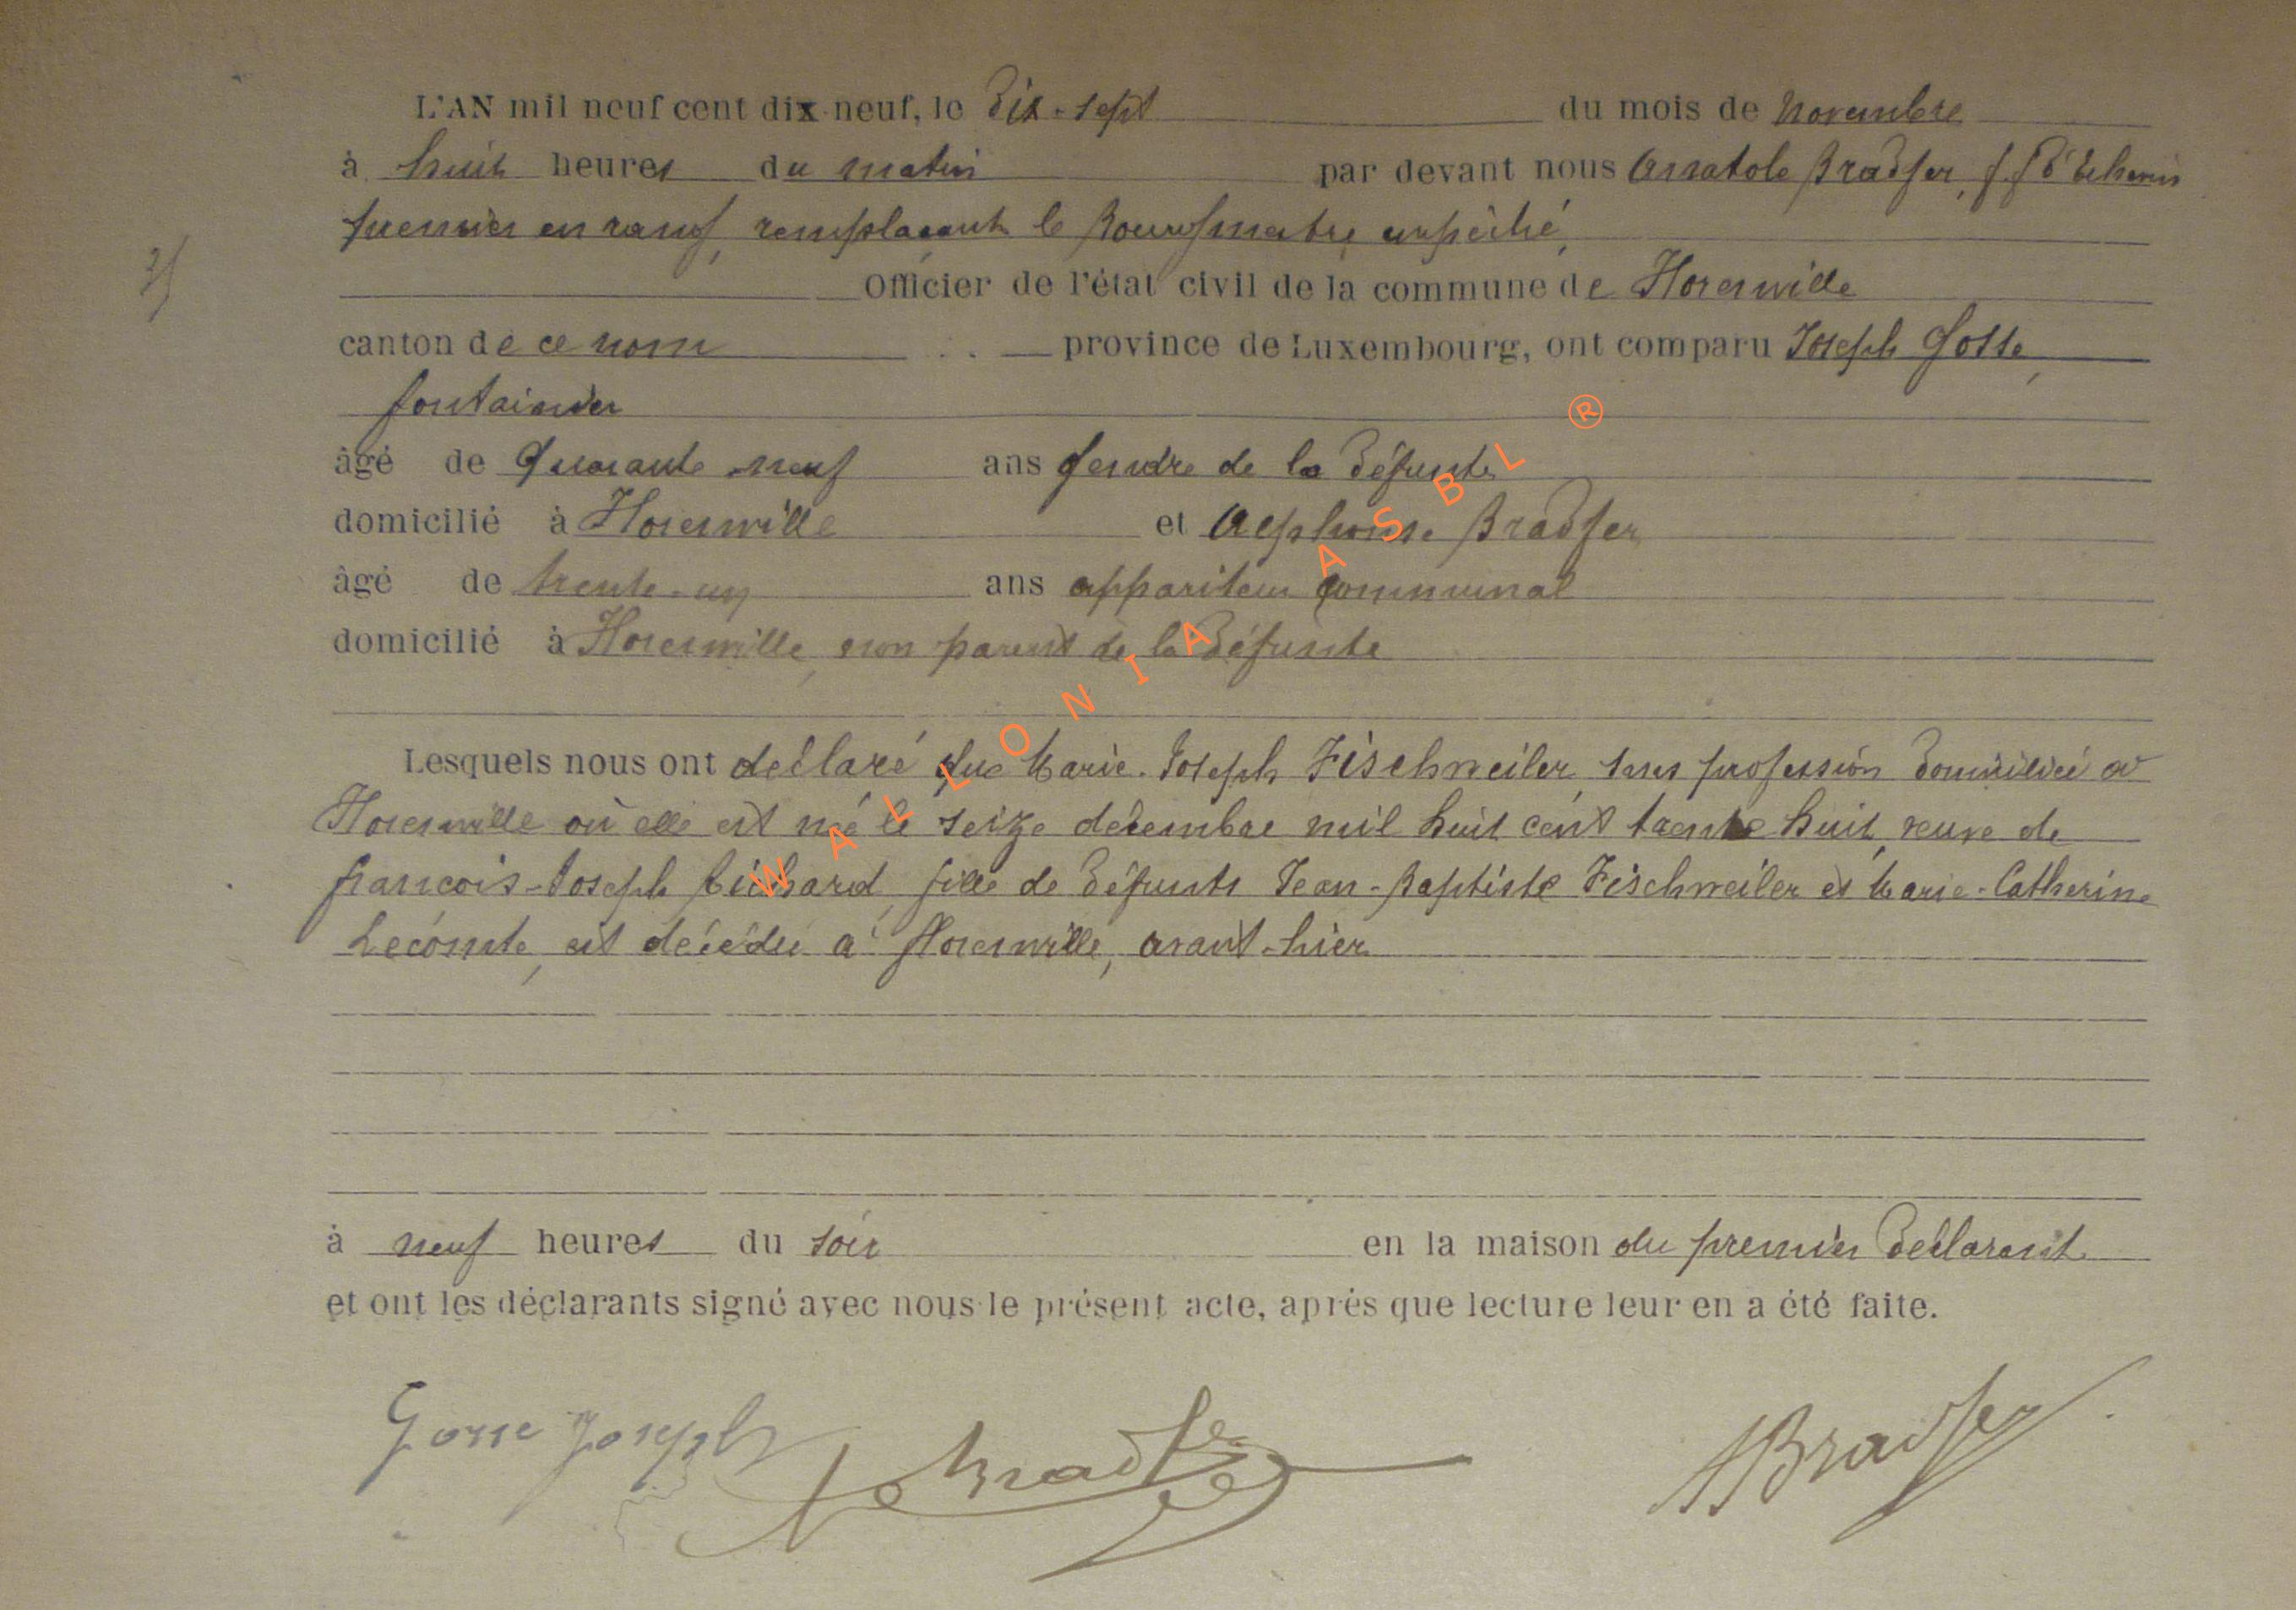 L'AN mil neuf cent dix-neuf, le dix-sept du mois de novembre
à huit heures du matin par devant nous Anatole Bradfer, f.f. d'Echevin
premier en rang, remplaçant le Bourgmestre empêché,
Officier de l'état civil de la commune de Florenville
canton de ce nom province de Luxembourg, ont comparu Joseph Gosse,
fontainier
âgé de Quarante-neuf ans gendre de la défunte
domicilié à Florenville et Alphonse Bradfer
âgé de trente-un ans appariteur communal
domicilié à Florenville, non parent de la défunte
Lesquels nous ont déclaré que Marie-Joseph Fischweiler, sans profession domiciliée à
Florenville où elle est née le seize décembre mil huit cent trente huit, veuve de
François-Joseph fille de défunts Jean-Baptiste Fischweiler et Marie-Catherine
Lecomte, est décédée à Florenville, avant-hier
à neuf heures du soir en la maison du premier déclarant
et ont les déclarants signé avec nous le présent acte, après que lecture leur en a été faite.
Gosse Joseph Bradfer ABradfer
WALLONIA ASBL ®